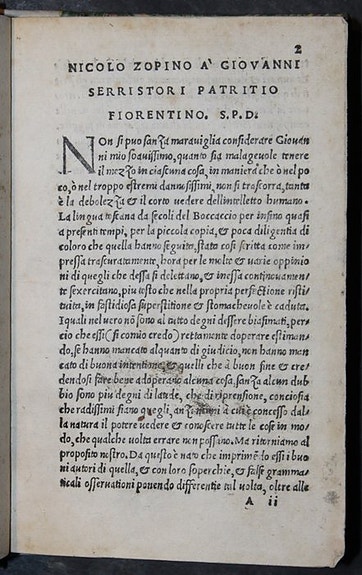 2
NICOLO ZOPINO A' GIOVANNI
SERRISTORI PATRITIO
FIORENTINO. S.P.D.
NOn si puo sanza maraviglia considerare Giovan
ni mio soavissimo, quanto sia malagevole tenere
il mezzo in ciascuna cosa, in maniera che ò nel po
co, ò nel troppo estremi dannosissimi, non si trascorra, tanta
è la debolezza & il corto vedere dellintelletto humano.
La lingua toscana da secoli del Boccaccio per infino quasi
a presenti tempi, per la piccola copia, & poca diligentia di
coloro che quella hanno seguito, stata cosi scritta come im-
pressa trascuratamente, hora per le molte & varie oppinio
ni di quegli che dessa si delettano, & inessa continovamen-
te sexercitano, piu tosto che nella propria perfettione risti
tuita, in fastidiosa superstitione & stomachevole è caduta.
I quali nel vero nõ sono al tutto degni dessere biasimati, per
cio che essi (si comio credo) rettamente doperare estiman-
do, se hanno mancato alquanto di giudicio, non hanno man
cato di buona intentione, & quelli che à buon fine & cre
dendosi fare bene adoperano alcuna cosa, sanza alcun dub
bio sono piu degni di laude, che di riprensione, conciosia
che radissimi siano quegli, anzi à cui è concesso dal-
la natura il potere vedere & conoscere tutte le cose in mo
do, che qualche volta errare non possino. Ma ritorniamo al
proposito nostro. Da questo è nato che imprimẽdo essi i buo
ni autori di quella, & con loro soperchie, & false gramma-
ticali osservationi ponendo differentie tal volta, oltre alle
A ii